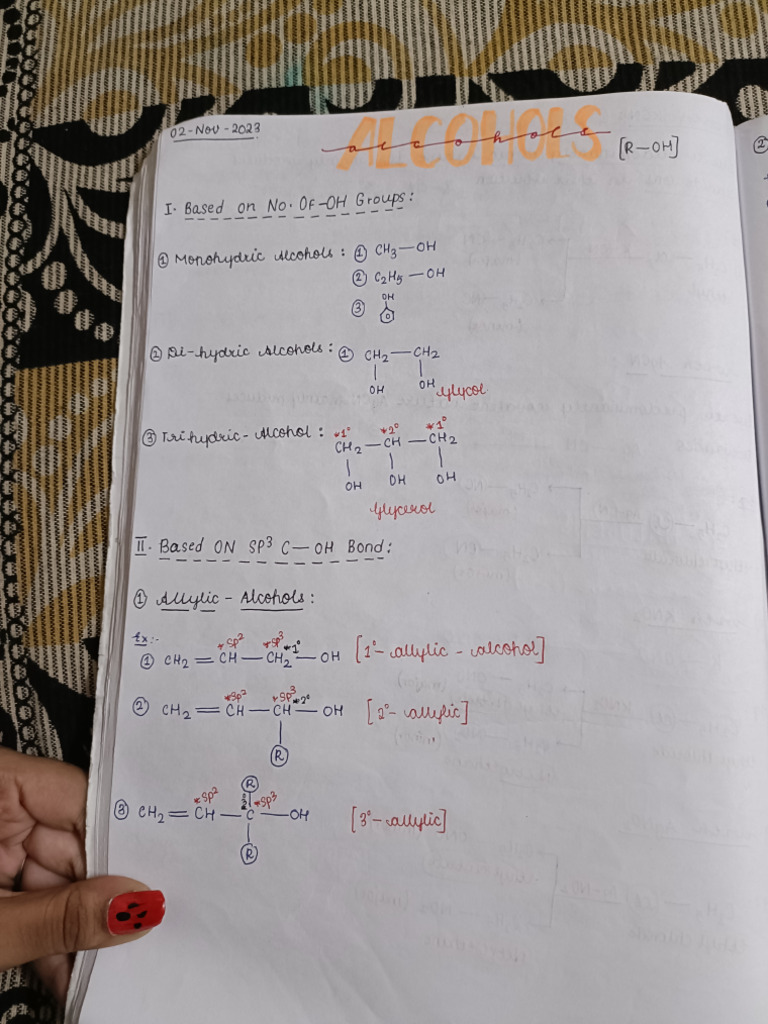 02-Nov-2023
ALCOHOLS
alcohols
[R—OH]
I. Based on No. Of -OH Groups:
① Monohydric Alcohols: ① CH3—OH
② C2H5—OH
③ OH
② Di-hydric Alcohols: ① CH2—CH2
OH OH Glycol
③ Trihydric-Alcohol: *1° *2° *1°
CH2—CH—CH2
OH OH OH
Glycerol
II. Based ON SP³ C—OH Bond:
① Allylic-Alcohols:
Ex:-
*SP² *SP³ *1°
① CH2=CH—CH2—OH [1°-allylic-alcohol]
*SP² *SP³ *2°
② CH2=CH—CH—OH [2°-allylic]
R
R
*SP² *SP³
③ CH2=CH—C—OH [3°-allylic]
R
②